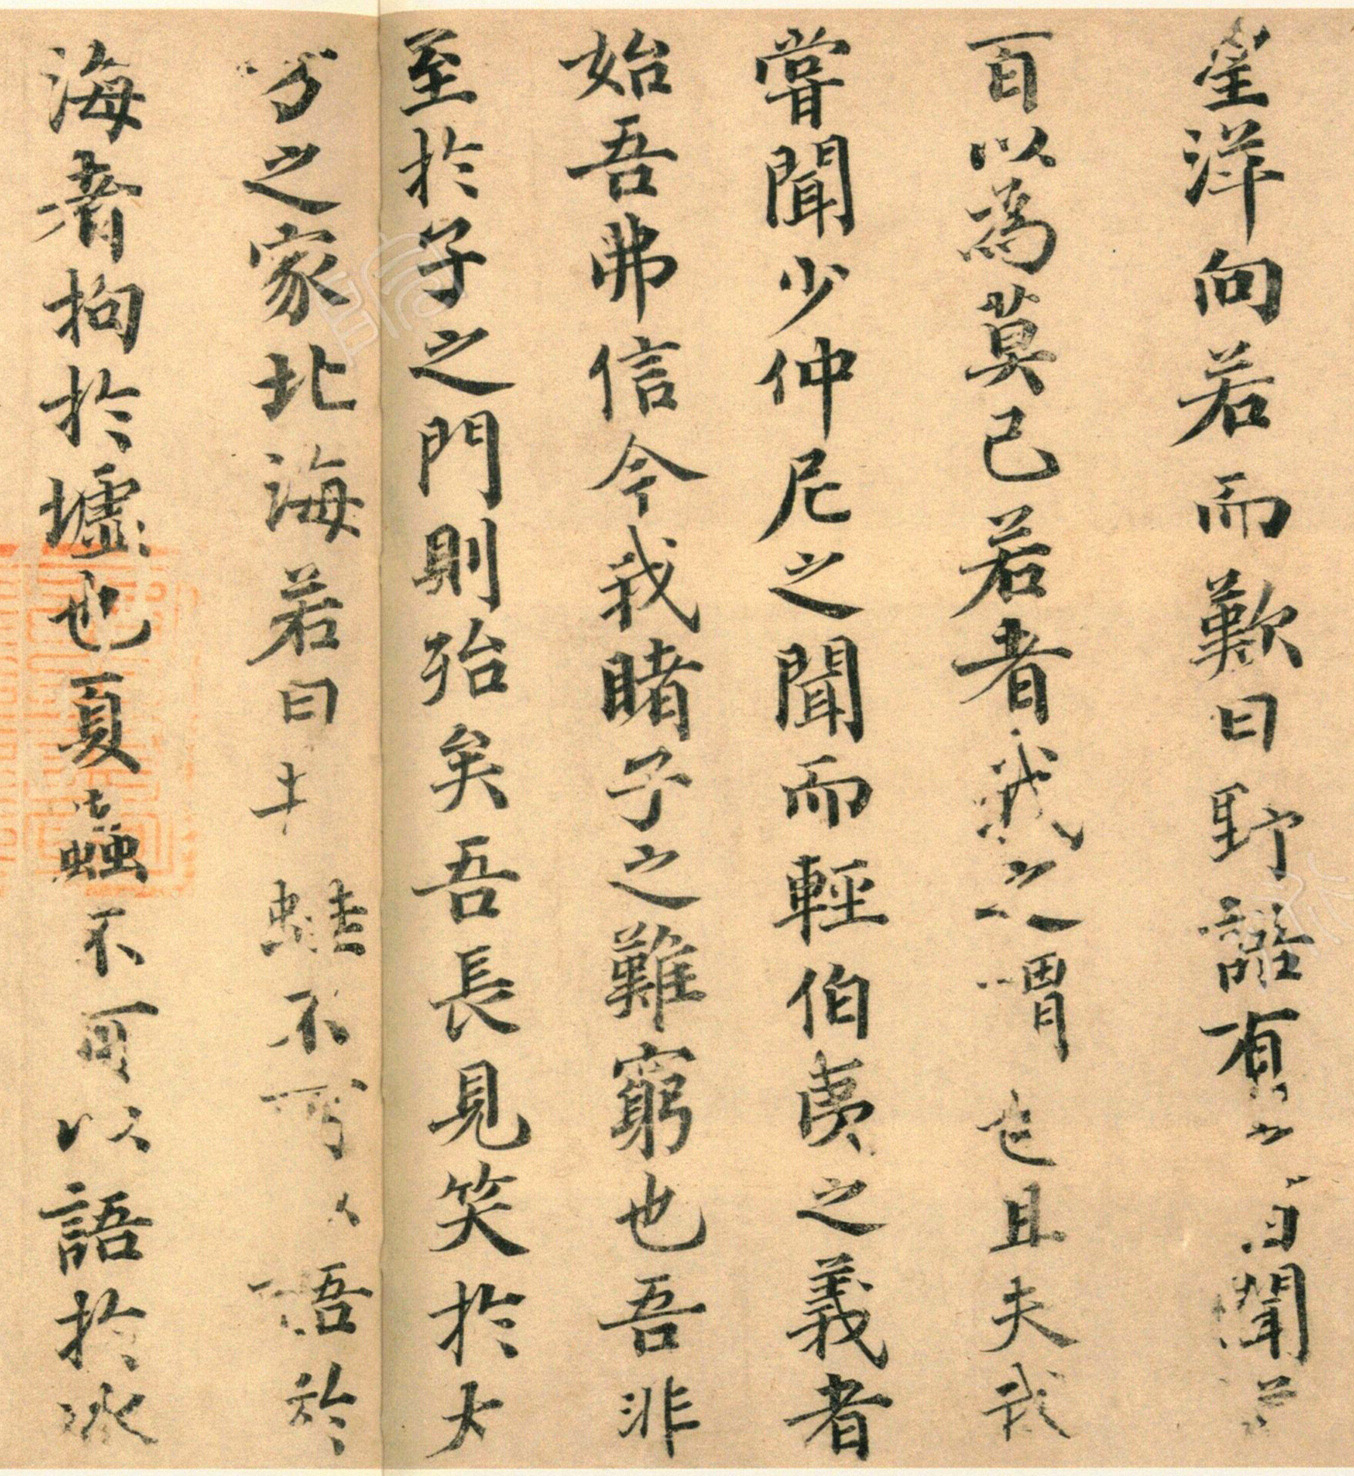 望洋向若而歎曰野語有之曰聞
百以為莫己若者我之謂也且夫我
嘗聞少仲尼之聞而輕伯夷之義者
始吾弗信今我睹子之難窮也吾非
至於子之門則殆矣吾長見笑於大
方之家北海若曰井蛙不可以語於
海者拘於墟也夏蟲不可以語於冰